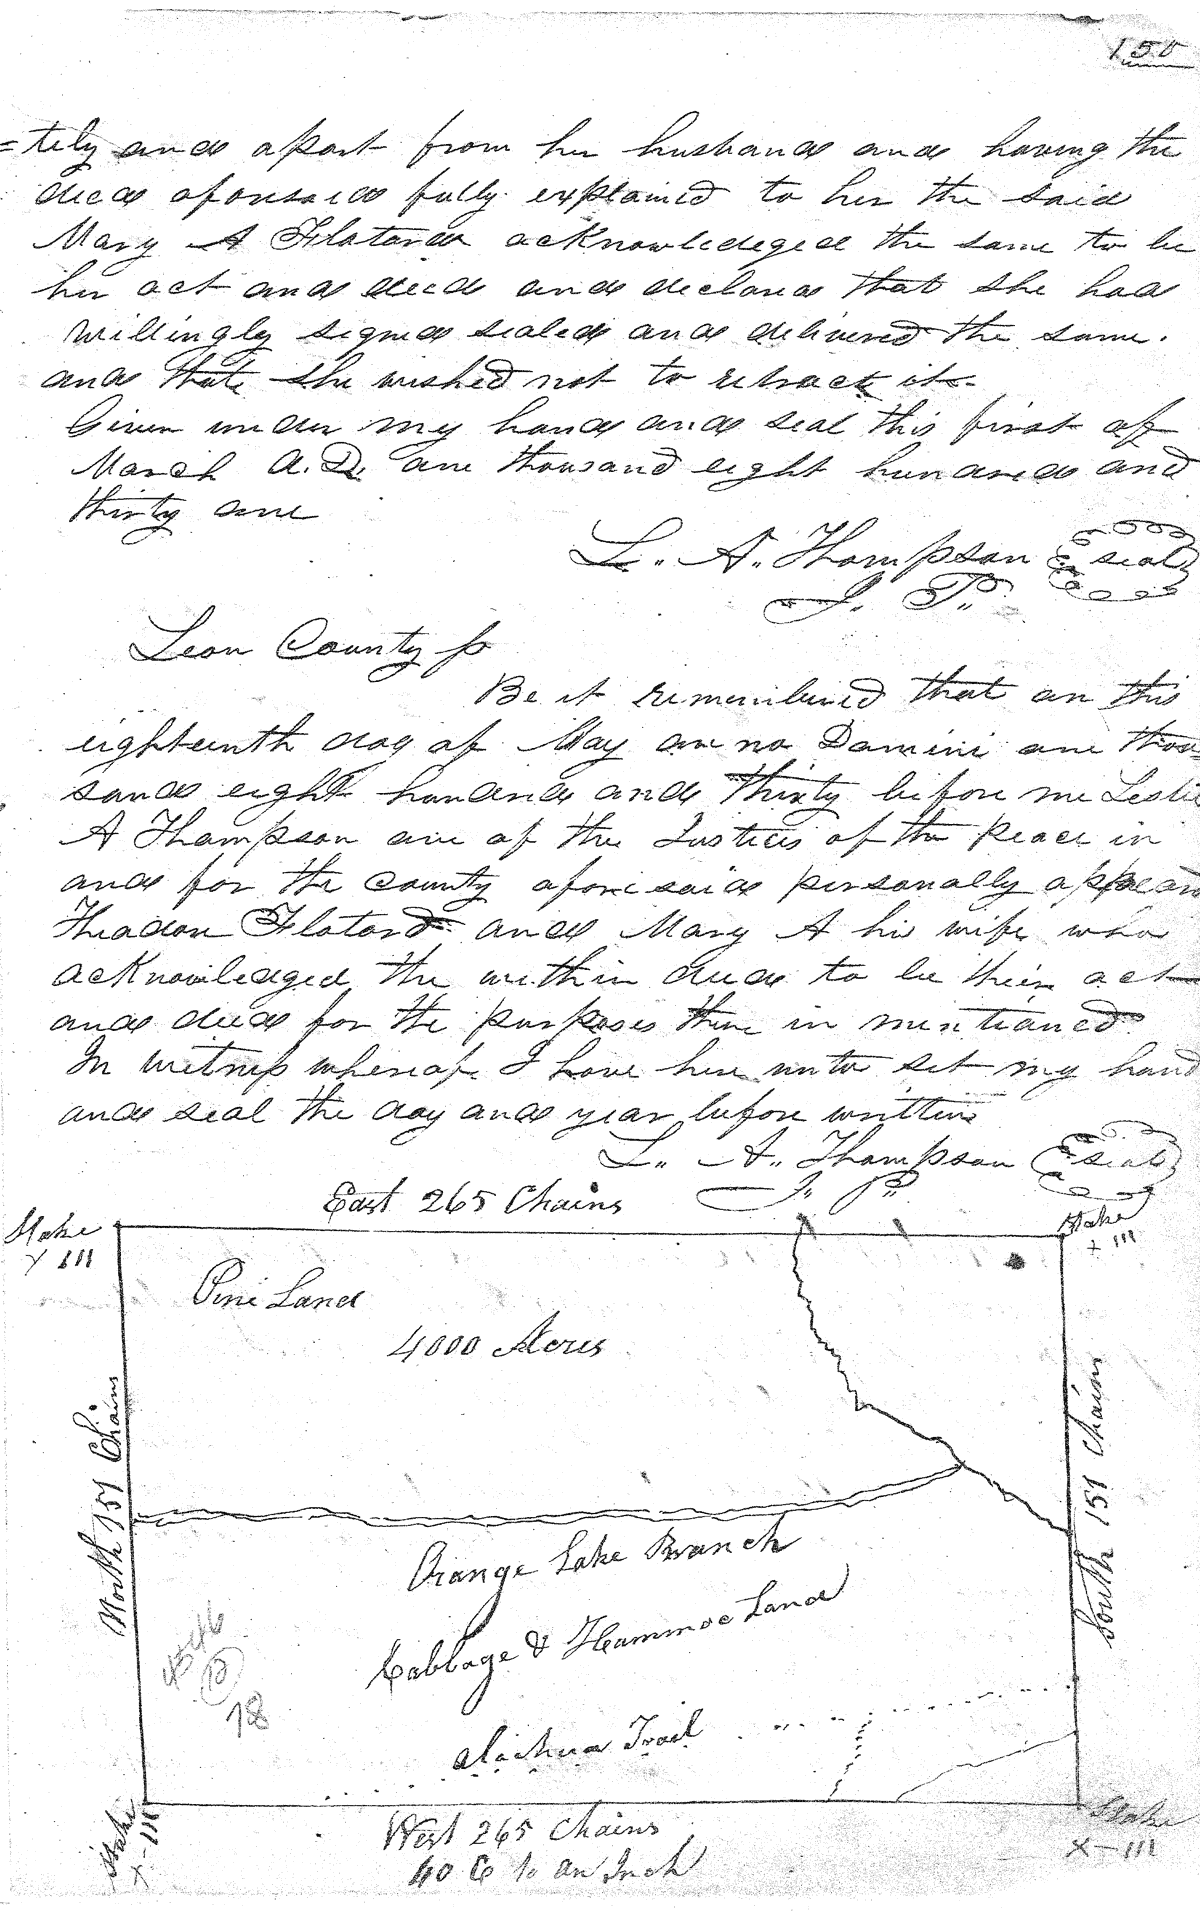 150
=tely and apart from her husband and having the
deed aforesaid fully explained to her the said
Mary A Flotard acknowledeged the same to be
her act and deed and declared that she had
willingly signed sealed and delivered the same.
and that she wished not to retract it.
Given under my hand and seal this first of
March A.D. one thousand eight hundred and
thirty one
L. A. Thompson seal
J. P.
Leon County
Be it remembered that on this
eighteenth day of May anno Domini one thou=
sand eight hundred and Thirty before me Leslie
A Thompson one of the Justices of the Peace in
and for the County aforesaid personally appeard
Theadon Flotard and Mary A his wife who
acknowledged the within deed to be their act
and deed for the purposes there in mentioned
In witness whereof I have here unto set my hand
and seal the day and year before written
L. A. Thompson seal
J. P.
East 265 Chains
Stake
Stake
Pine Land
4000 Acres
North 151 Chains
South 151 Chains
Orange Lake Branch
Cabbage & Hammoc Land
Alachua Trail
18
Stake
X-111
West 265 Chains
Stake
X-111
40 C to an Inch